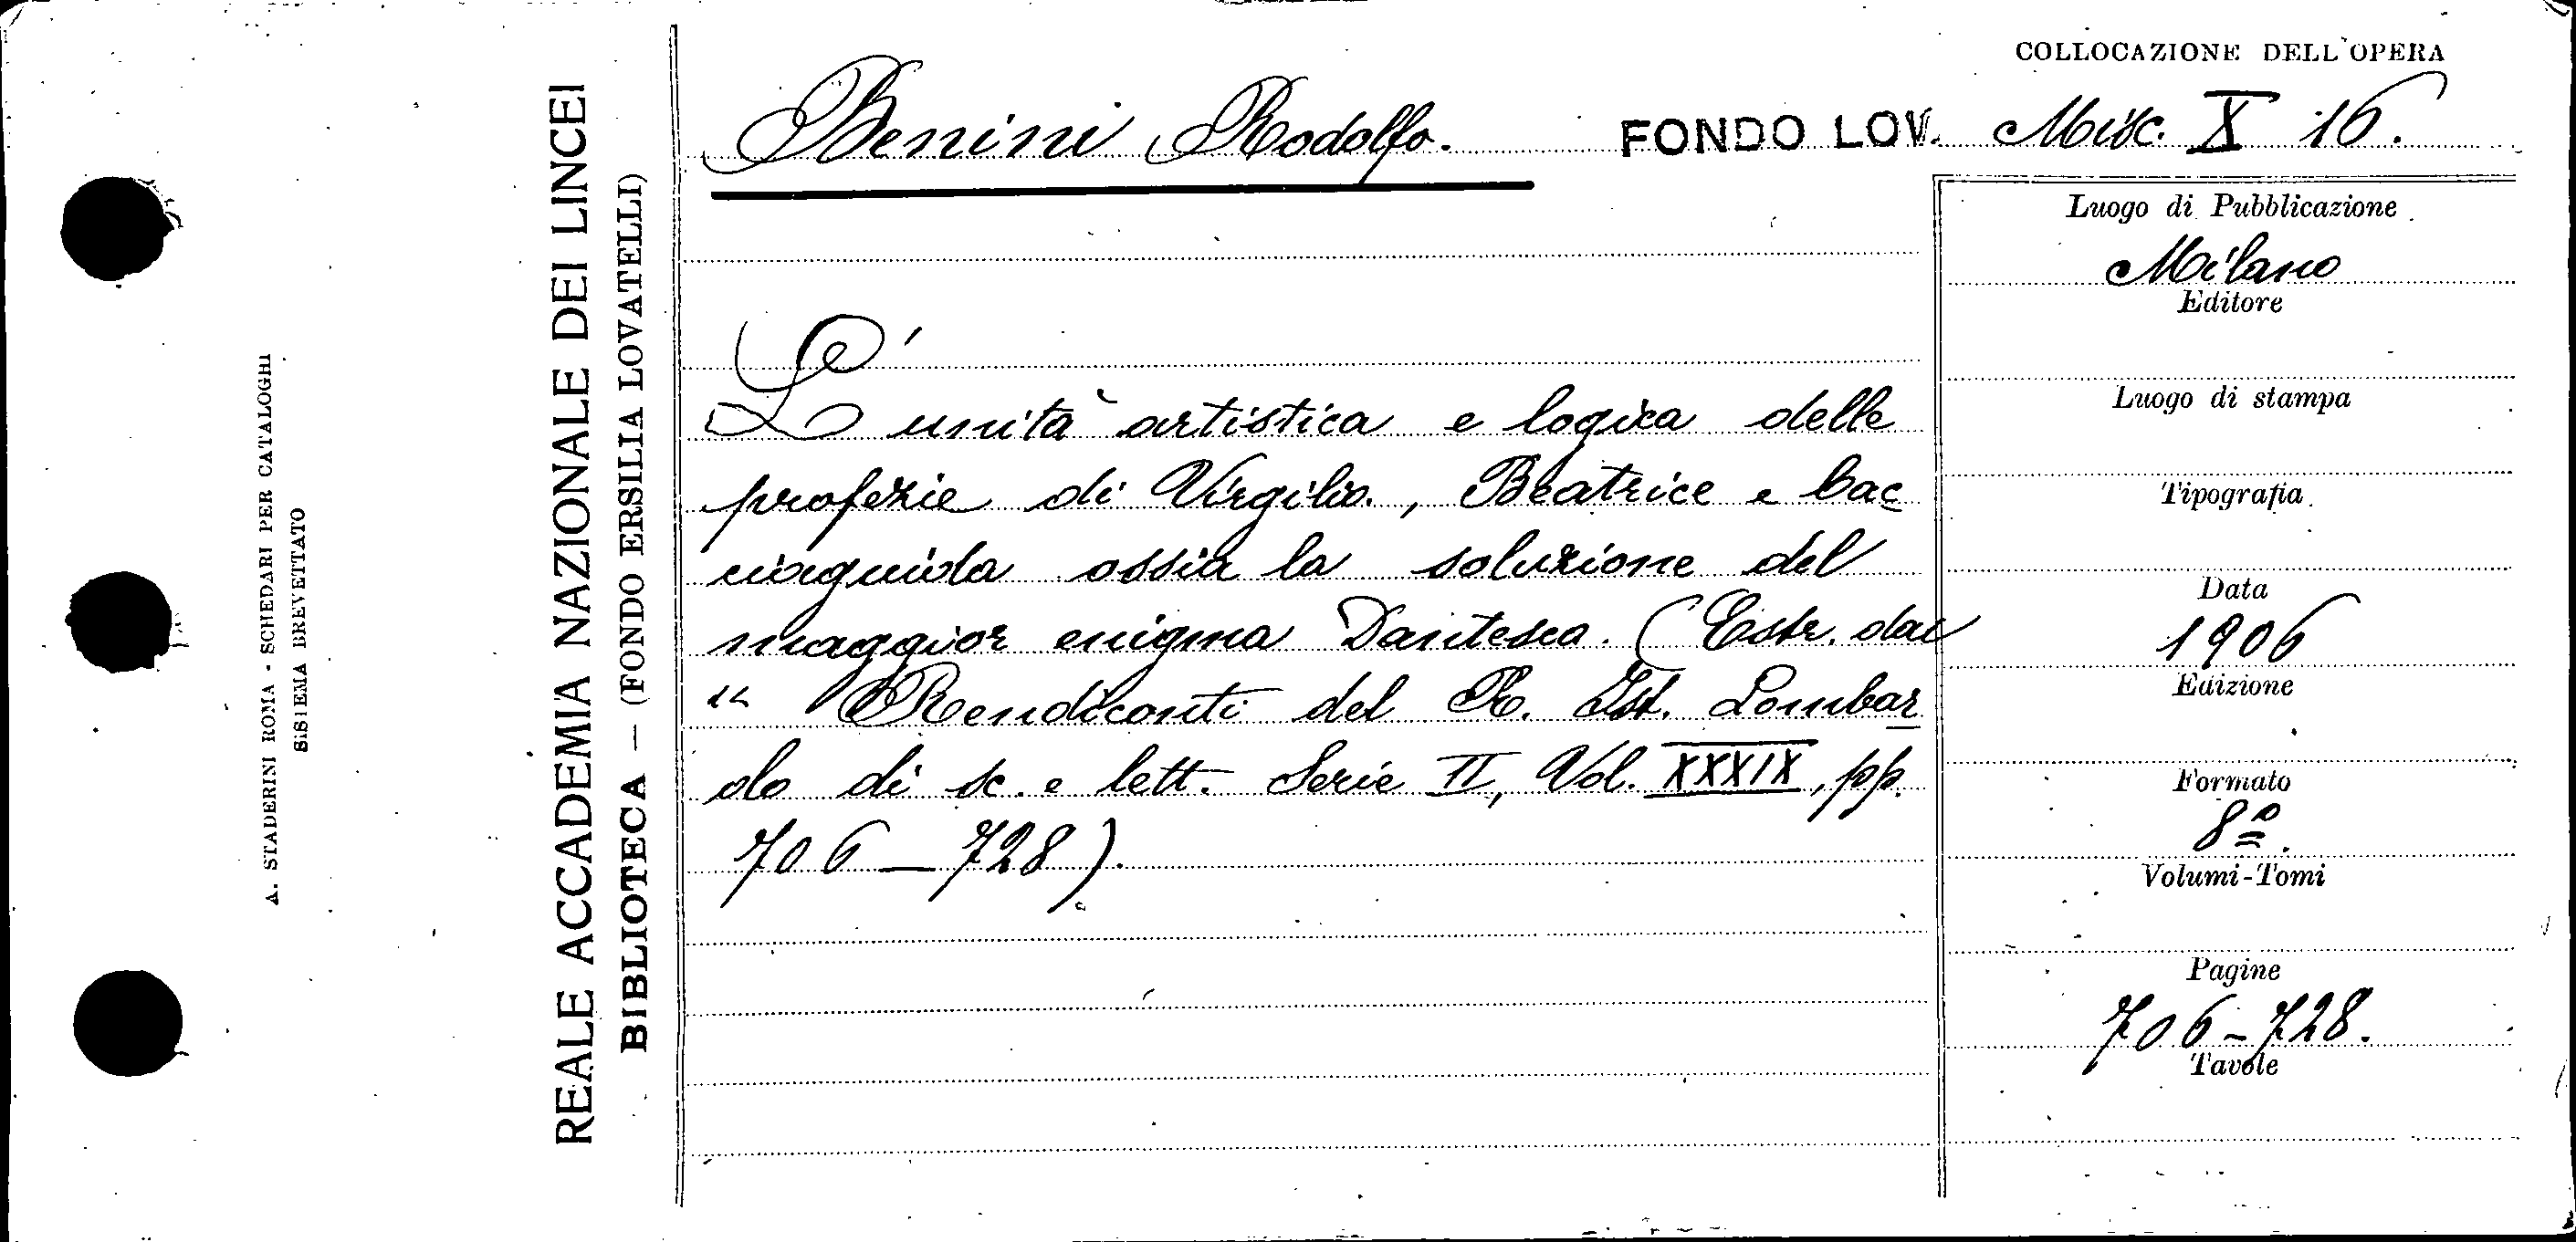 COLLOCAZIONE DELL'OPERA
Benini Rodolfo. FONDO LOV. Misc. X 16.
L'unità artistica e logica delle
profezie di Virgilio., Beatrice e Cac
ciaguida ossia la soluzione del
maggior enigma Dantesco. (Estr. dai
" Rendiconti del R. Ist. Lombar
do di sc. e lett. Serie II, Vol. XXXIX, pp.
706 — 728).
Luogo di Pubblicazione
Milano
Editore
Luogo di stampa
Tipografia
Data
1906
Edizione
Formato
8º.
Volumi-Tomi
Pagine
706-728.
Tavole
REALE ACCADEMIA NAZIONALE DEI LINCEI
BIBLIOTECA — (FONDO ERSILIA LOVATELLI)
A. STADERINI ROMA - SCHEDARI PER CATALOGHI
SISTEMA BREVETTATO